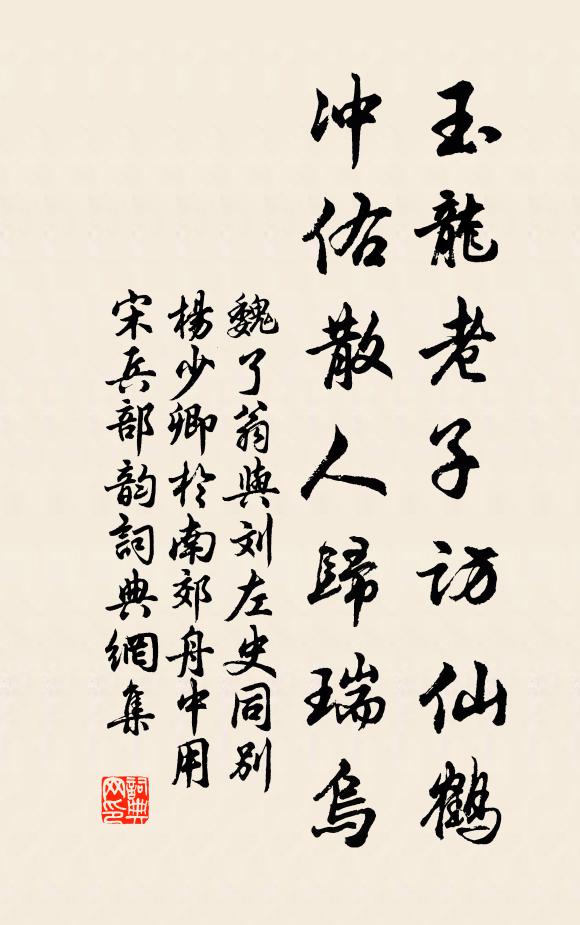 玉龍老子訪仙鶴
冲佑散人歸瑞烏
魏了翁與刘左史同別
楊少卿於南郊舟中用
宋兵部韵詞典網集
詞典
网印